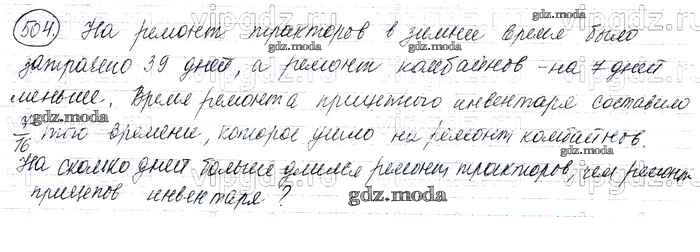 504. На ремонт тракторов в зимнее время было
затрачено 39 дней, а ремонт комбайнов - на 7 дней
меньше. Время ремонта прицепного инвентаря составило
/16 того времени, которое ушло на ремонт компайнов.
На сколько дней больше длился ремонт тракторов, чем ремонт
прицепов инвентаря?
gdz.moda
gdz.moda
gdz.moda
gdz.moda
gdz.moda
gdz.moda